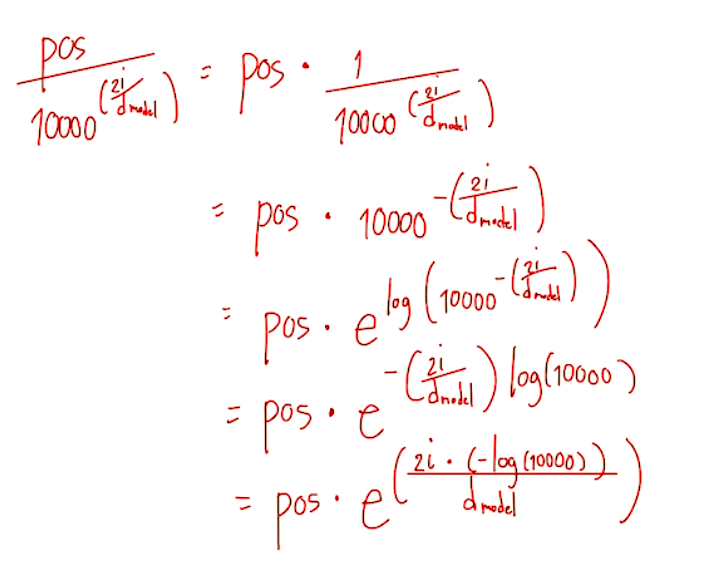 pos / 10000^(2i/d_model) = pos · 1 / 10000^(2i/d_model)
= pos · 10000^-(2i/d_model)
= pos · e^log(10000^-(2i/d_model))
= pos · e^-(2i/d_model) log(10000)
= pos · e^(2i · (-log(10000)) / d_model)